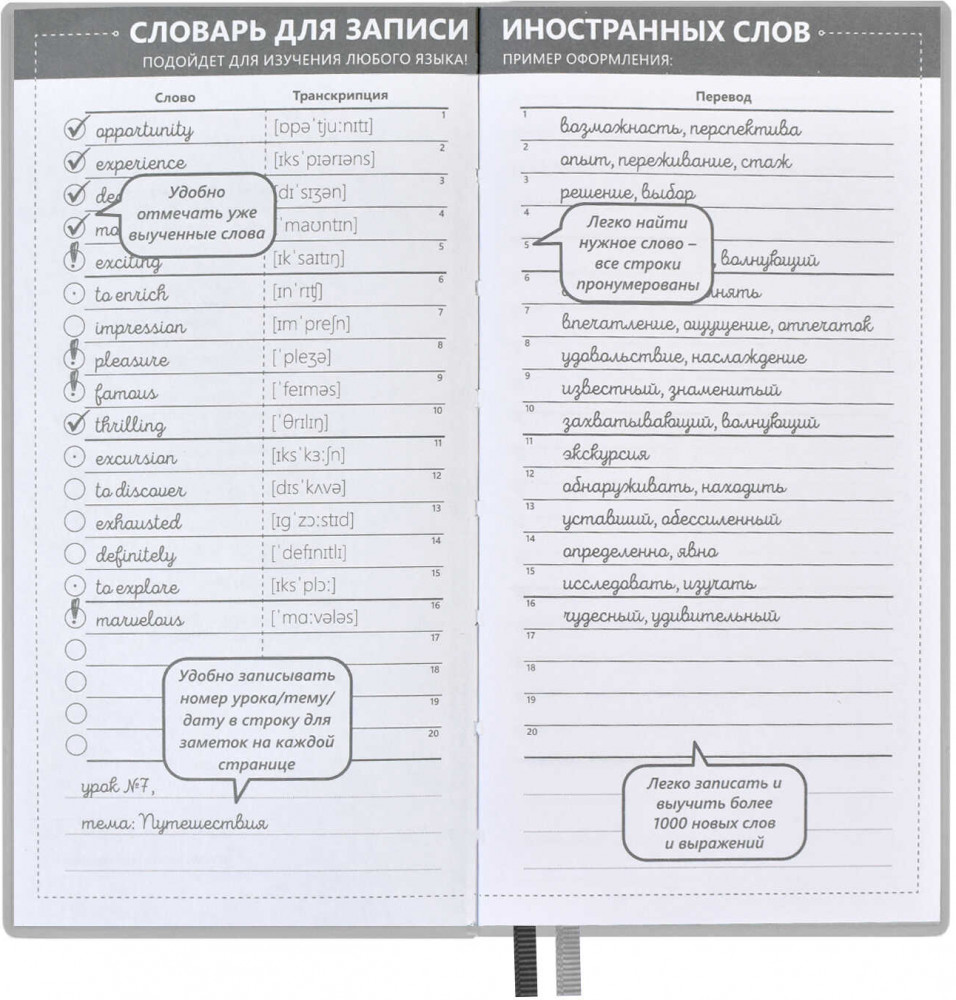 СЛОВАРЬ ДЛЯ ЗАПИСИ ИНОСТРАННЫХ СЛОВ
ПОДОЙДЕТ ДЛЯ ИЗУЧЕНИЯ ЛЮБОГО ЯЗЫКА! ПРИМЕР ОФОРМЛЕНИЯ:
Слово Транскрипция
1
opportunity [ɒpəˈtjuːnɪtɪ]
2
experience [ɪksˈpɪərɪəns]
3
[dɪˈsɪʒən]
4
[ˈmaʊntɪn]
5
exciting [ɪkˈsaɪtɪŋ]
6
to enrich [ɪnˈrɪʧ]
7
impression [ɪmˈpreʃn]
8
pleasure [ˈpleʒə]
9
famous [ˈfeɪməs]
10
thrilling [ˈθrɪlɪŋ]
11
excursion [ɪksˈkɜːʃn]
12
to discover [dɪsˈkʌvə]
13
exhausted [ɪgˈzɔːstɪd]
14
definitely [ˈdefɪnɪtlɪ]
15
to explore [ɪksˈplɔː]
16
marvelous [ˈmɑːvələs]
17
18
19
20
Удобно
отмечать уже
выученные слова
Удобно записывать
номер урока/тему/
дату в строку для
заметок на каждой
странице
урок №7,
тема: Путешествия
Перевод
1
возможность, перспектива
2
опыт, переживание, стаж
3
решение, выбор
4
5
, волнующий
6
7
впечатление, ощущение, отпечаток
8
удовольствие, наслаждение
9
известный, знаменитый
10
захватывающий, волнующий
11
экскурсия
12
обнаруживать, находить
13
уставший, обессиленный
14
определенно, явно
15
исследовать, изучать
16
чудесный, удивительный
17
18
19
20
Легко найти
нужное слово –
все строки
пронумерованы
Легко записать и
выучить более
1000 новых слов
и выражений